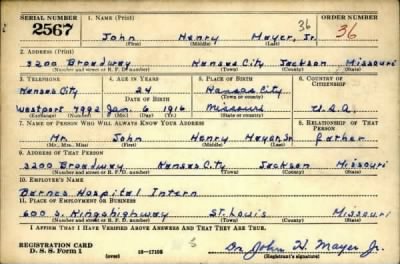 SERIAL NUMBER 1. NAME (Print) ORDER NUMBER
2567 John Henry Mayer, Jr. 36 36
(First) (Middle) (Last)
2. ADDRESS (Print)
3200 Broadway Kansas City Jackson Missouri
(Number and street or R. F. D. number) (Town) (County) (State)
3. TELEPHONE 4. AGE IN YEARS 5. PLACE OF BIRTH 6. COUNTRY OF CITIZENSHIP
Kansas City 24 Kansas City
DATE OF BIRTH (Town or county)
Westport 7992 Jan. 6, 1916 Missouri U.S.A.
(Exchange) (Number) (Mo.) (Day) (Yr.) (State or country)
7. NAME OF PERSON WHO WILL ALWAYS KNOW YOUR ADDRESS 8. RELATIONSHIP OF THAT PERSON
Mr. John Henry Mayer, Sr. father
(Mr., Mrs., Miss) (First) (Middle) (Last)
9. ADDRESS OF THAT PERSON
3200 Broadway Kansas City Jackson Missouri
(Number and street or R. F. D. number) (Town) (County) (State)
10. EMPLOYER'S NAME
Barnes Hospital Intern
11. PLACE OF EMPLOYMENT OR BUSINESS
600 S. Kingshighway St. Louis Missouri
(Number and street or R. F. D. number) (Town) (County) (State)
I AFFIRM THAT I HAVE VERIFIED ABOVE ANSWERS AND THAT THEY ARE TRUE.
REGISTRATION CARD
D. S. S. Form 1 (over) 16-17105 Dr. John H. Mayer Jr.